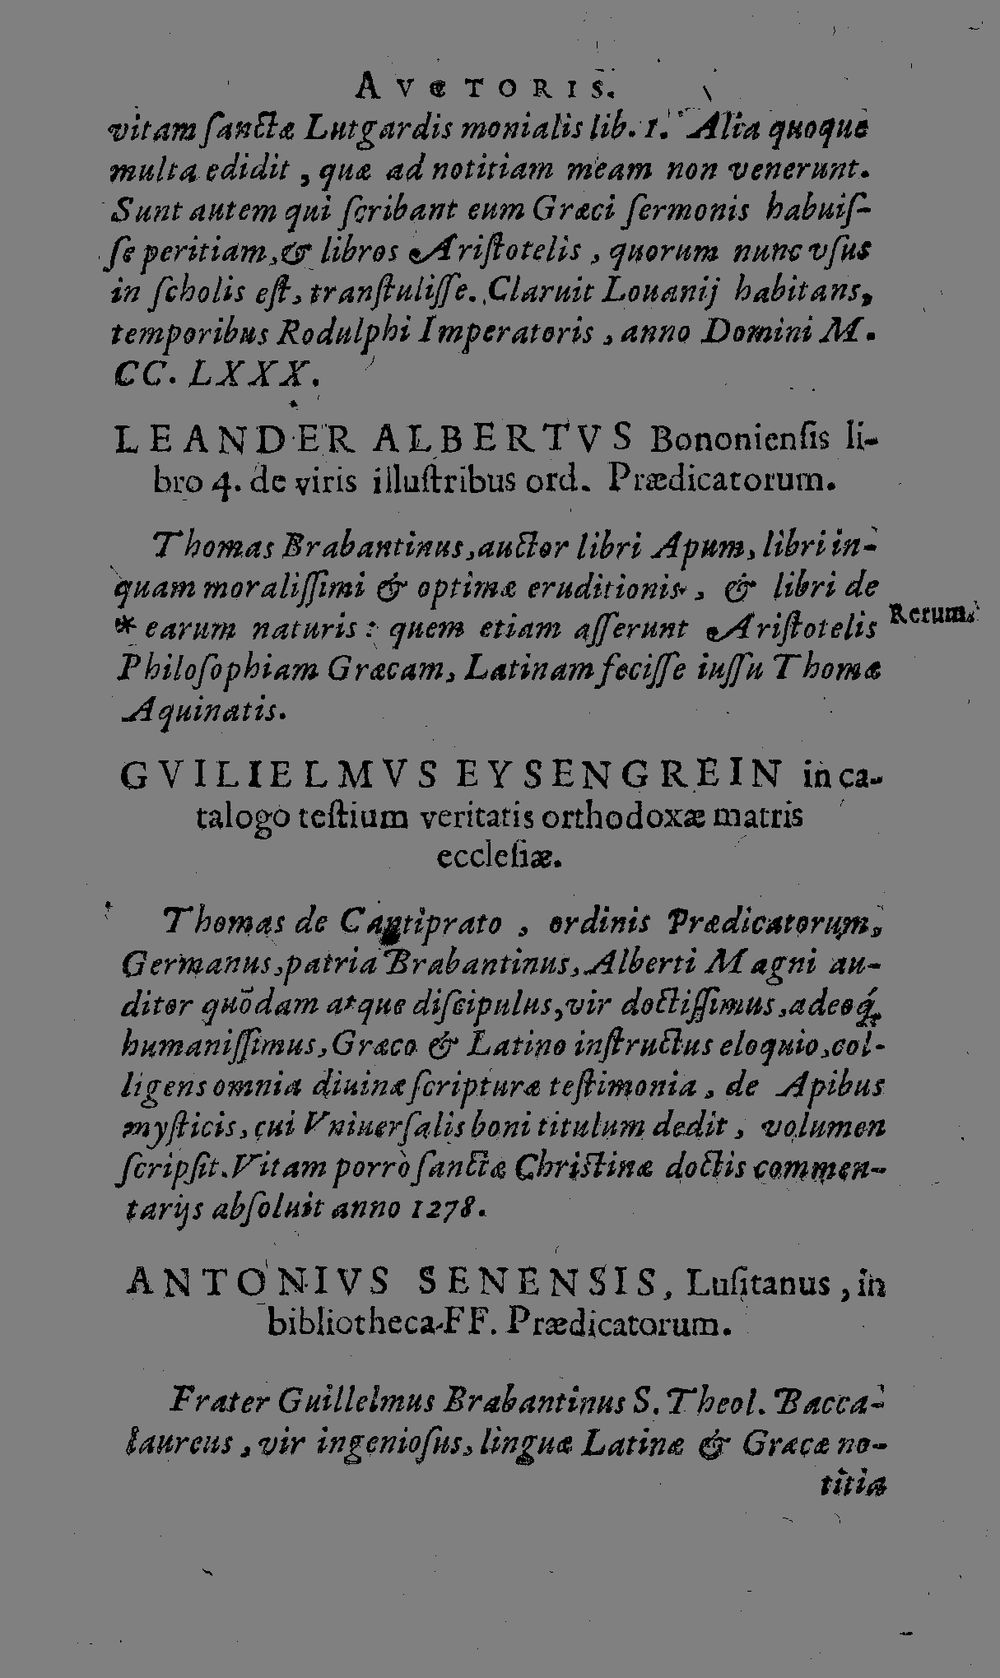 AVCTORIS.
vitam ſanctæ Lutgardis monialis lib. 1. Alia quoque
multa edidit, quæ ad notitiam meam non venerunt.
Sunt autem qui ſcribant eum Græci ſermonis habuiſ-
ſe peritiam, & libros Ariſtotelis, quorum nunc vſus
in ſcholis eſt, tranſtuliſſe. Claruit Louanij habitans,
temporibus Rodulphi Imperatoris, anno Domini M.
CC. LXXX.
LEANDER ALBERTVS Bononienſis li-
bro 4. de viris illuſtribus ord. Prædicatorum.
Thomas Brabantinus, auctor libri Apum, libri in-
quam moraliſſimi & optimæ eruditionis, & libri de
* earum naturis: quem etiam aſſerunt Ariſtotelis
Rerum.
Philoſophiam Græcam, Latinam feciſſe iuſſu Thomæ
Aquinatis.
GVILIELMVS EYSENGREIN in ca-
talogo teſtium veritatis orthodoxæ matris
eccleſiæ.
Thomas de Cantiprato, ordinis Prædicatorum,
Germanus, patria Brabantinus, Alberti Magni au-
ditor quõdam atque diſcipulus, vir doctiſſimus, adeoq́;
humaniſſimus, Græco & Latino inſtructus eloquio, col-
ligens omnia diuinæ ſcripturæ teſtimonia, de Apibus
myſticis, cui Vniuerſalis boni titulum dedit, volumen
ſcripſit. Vitam porrò ſanctæ Chriſtinæ doctis commen-
tarijs abſoluit anno 1278.
ANTONIVS SENENSIS, Luſitanus, in
bibliotheca FF. Prædicatorum.
Frater Guillelmus Brabantinus S. Theol. Bacca-
laureus, vir ingenioſus, linguæ Latinæ & Græcæ no-
titia